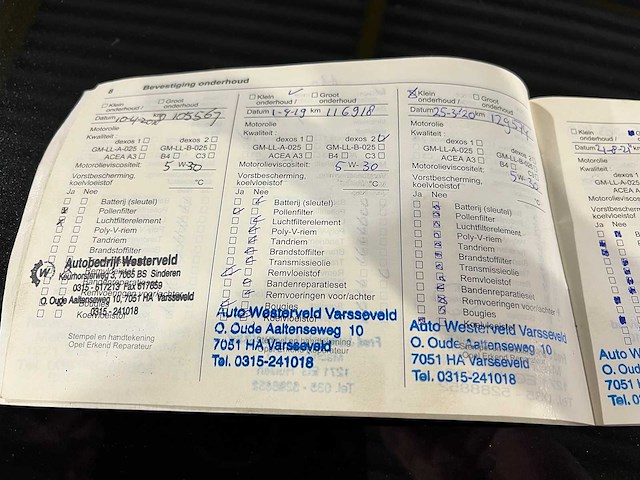 8 Bevestiging onderhoud
Klein onderhoud / Groot onderhoud
km 105567
Motorolie
Kwaliteit:
dexos 1 dexos 2
GM-LL-A-025 GM-LL-B-025
ACEA A3 B4 C3
Motorolieviscositeit: 5 W-30
Vorstbescherming, koelvloeistof °C
Ja Nee
Batterij (sleutel)
Pollenfilter
Luchtfilterelement
Poly-V-riem
Tandriem
Brandstoffilter
Autobedrijf Westerveld
Keurhorstweg 3, 7065 BS Sinderen
0315-617213 Fax 617659
O. Oude Aaltenseweg 10, 7051 HA Varsseveld
0315-241018
Koelvloeistof
Stempel en handtekening
Opel Erkend Reparateur
Klein onderhoud / Groot onderhoud
Datum 1-4-19 km 116918
Motorolie
Kwaliteit:
dexos 1 dexos 2
GM-LL-A-025 GM-LL-B-025
ACEA A3 B4 C3
Motorolieviscositeit: 5 W-30
Vorstbescherming,
koelvloeistof °C
Ja Nee
Batterij (sleutel)
Pollenfilter
Luchtfilterelement
Poly-V-riem
Tandriem
Brandstoffilter
Transmissieolie
Remvloeistof
Bandenreparatieset
Remvoeringen voor/achter
Bougies
Auto Westerveld Varsseveld
O. Oude Aaltenseweg 10
7051 HA Varsseveld
Tel. 0315-241018
Klein onderhoud / Groot onderhoud
Datum 25-3/20 km
Motorolie
Kwaliteit:
dexos 1 dexos 2
GM-LL-A-025 GM-LL-B-025
ACEA A3 B4 C3
Motorolieviscositeit: 5 W-30
Vorstbescherming,
koelvloeistof °C
Ja Nee
Batterij (sleutel)
Pollenfilter
Luchtfilterelement
Poly-V-riem
Tandriem
Brandstoffilter
Transmissieolie
Remvloeistof
Bandenreparatieset
Remvoeringen voor/achter
Bougies
Auto Westerveld Varsseveld
O. Oude Aaltenseweg 10
7051 HA Varsseveld
Tel. 0315-241018
Klein
onderhoud /
Datum
Motorolie
Kwaliteit:
dexos 1
GM-LL-A-025
ACEA A3
Motorolieviscositeit
Vorstbescherming,
koelvloeistof
Ja Nee
Auto W
O. Ou
7051
Tel. 0